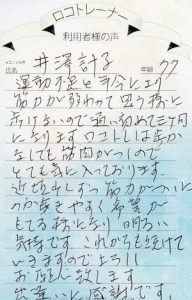 ロコトレーナー
利用者様の声
氏名 井澤計子 年齢 77
運動不足と手分により
筋力が弱わって思う様に
歩けないので通い初めて三ヶ月
になります ロコトレは歩か
なくても筋肉がつくので
とても気に入っております。
近頃少しずつ筋力がついた
のか歩きやすく希望が
もてる様になり 明るい
気持です。これからも続けて
いきますので よろしく
お願い致します
出逢いに感謝です。